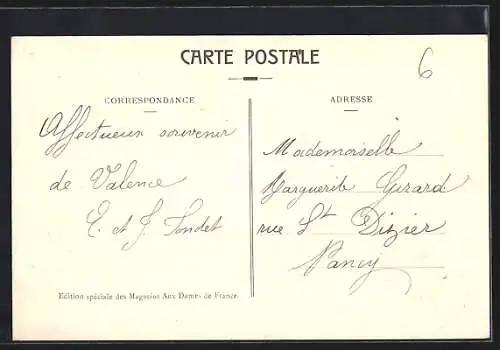 CARTE POSTALE
6
CORRESPONDANCE
Affectueux souvenir
de Valence
E. et J. Tondet
Edition spéciale des Magasins Aux Dames de France.
ADRESSE
Mademoiselle
Marguerite Girard
rue St Dizier
Nancy